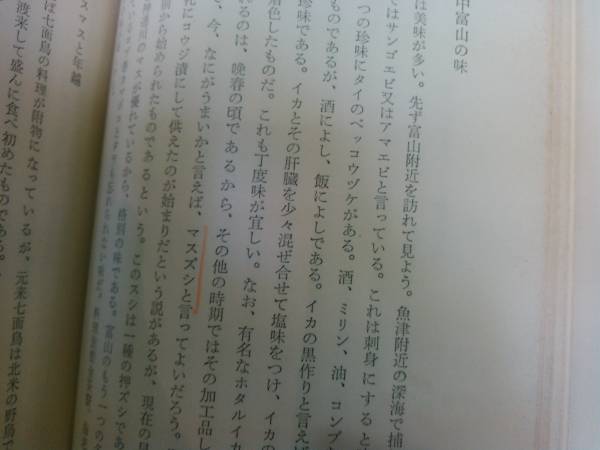 中富山の味
は美味が多い。先ず富山附近を訪れて見よう。魚津附近の深海で捕
ではサンゴエビ又はアマエビと言っている。これは刺身にすると
つの珍味にタイのベッコウヅケがある。酒、ミリン、油、コンブ
ものであるが、酒によし、飯によしである。イカの黒作りと言えば
珍味である。イカとその肝臓を少々混ぜ合せて塩味をつけ、イカの
着色したものだ。これも丁度味が宜しい。なお、有名なホタルイカ
いるのは、晩春の頃であるから、その他の時期ではその加工品し
で、今、なにがうまいかと言えば、マスズシと言ってよいだろう。
礼にコウジ漬にして供えたのが始まりだという説があるが、現在の
前から始められたものであるという。このスシは一種の押ズシであ
神通川のマスが優れているから、格別の味である。富山のもう一つの
スマスと年越
は七面鳥の料理が附物になっているが、元来七面鳥は北米の野鳥で
渡来して盛んに食べ初めたものである。